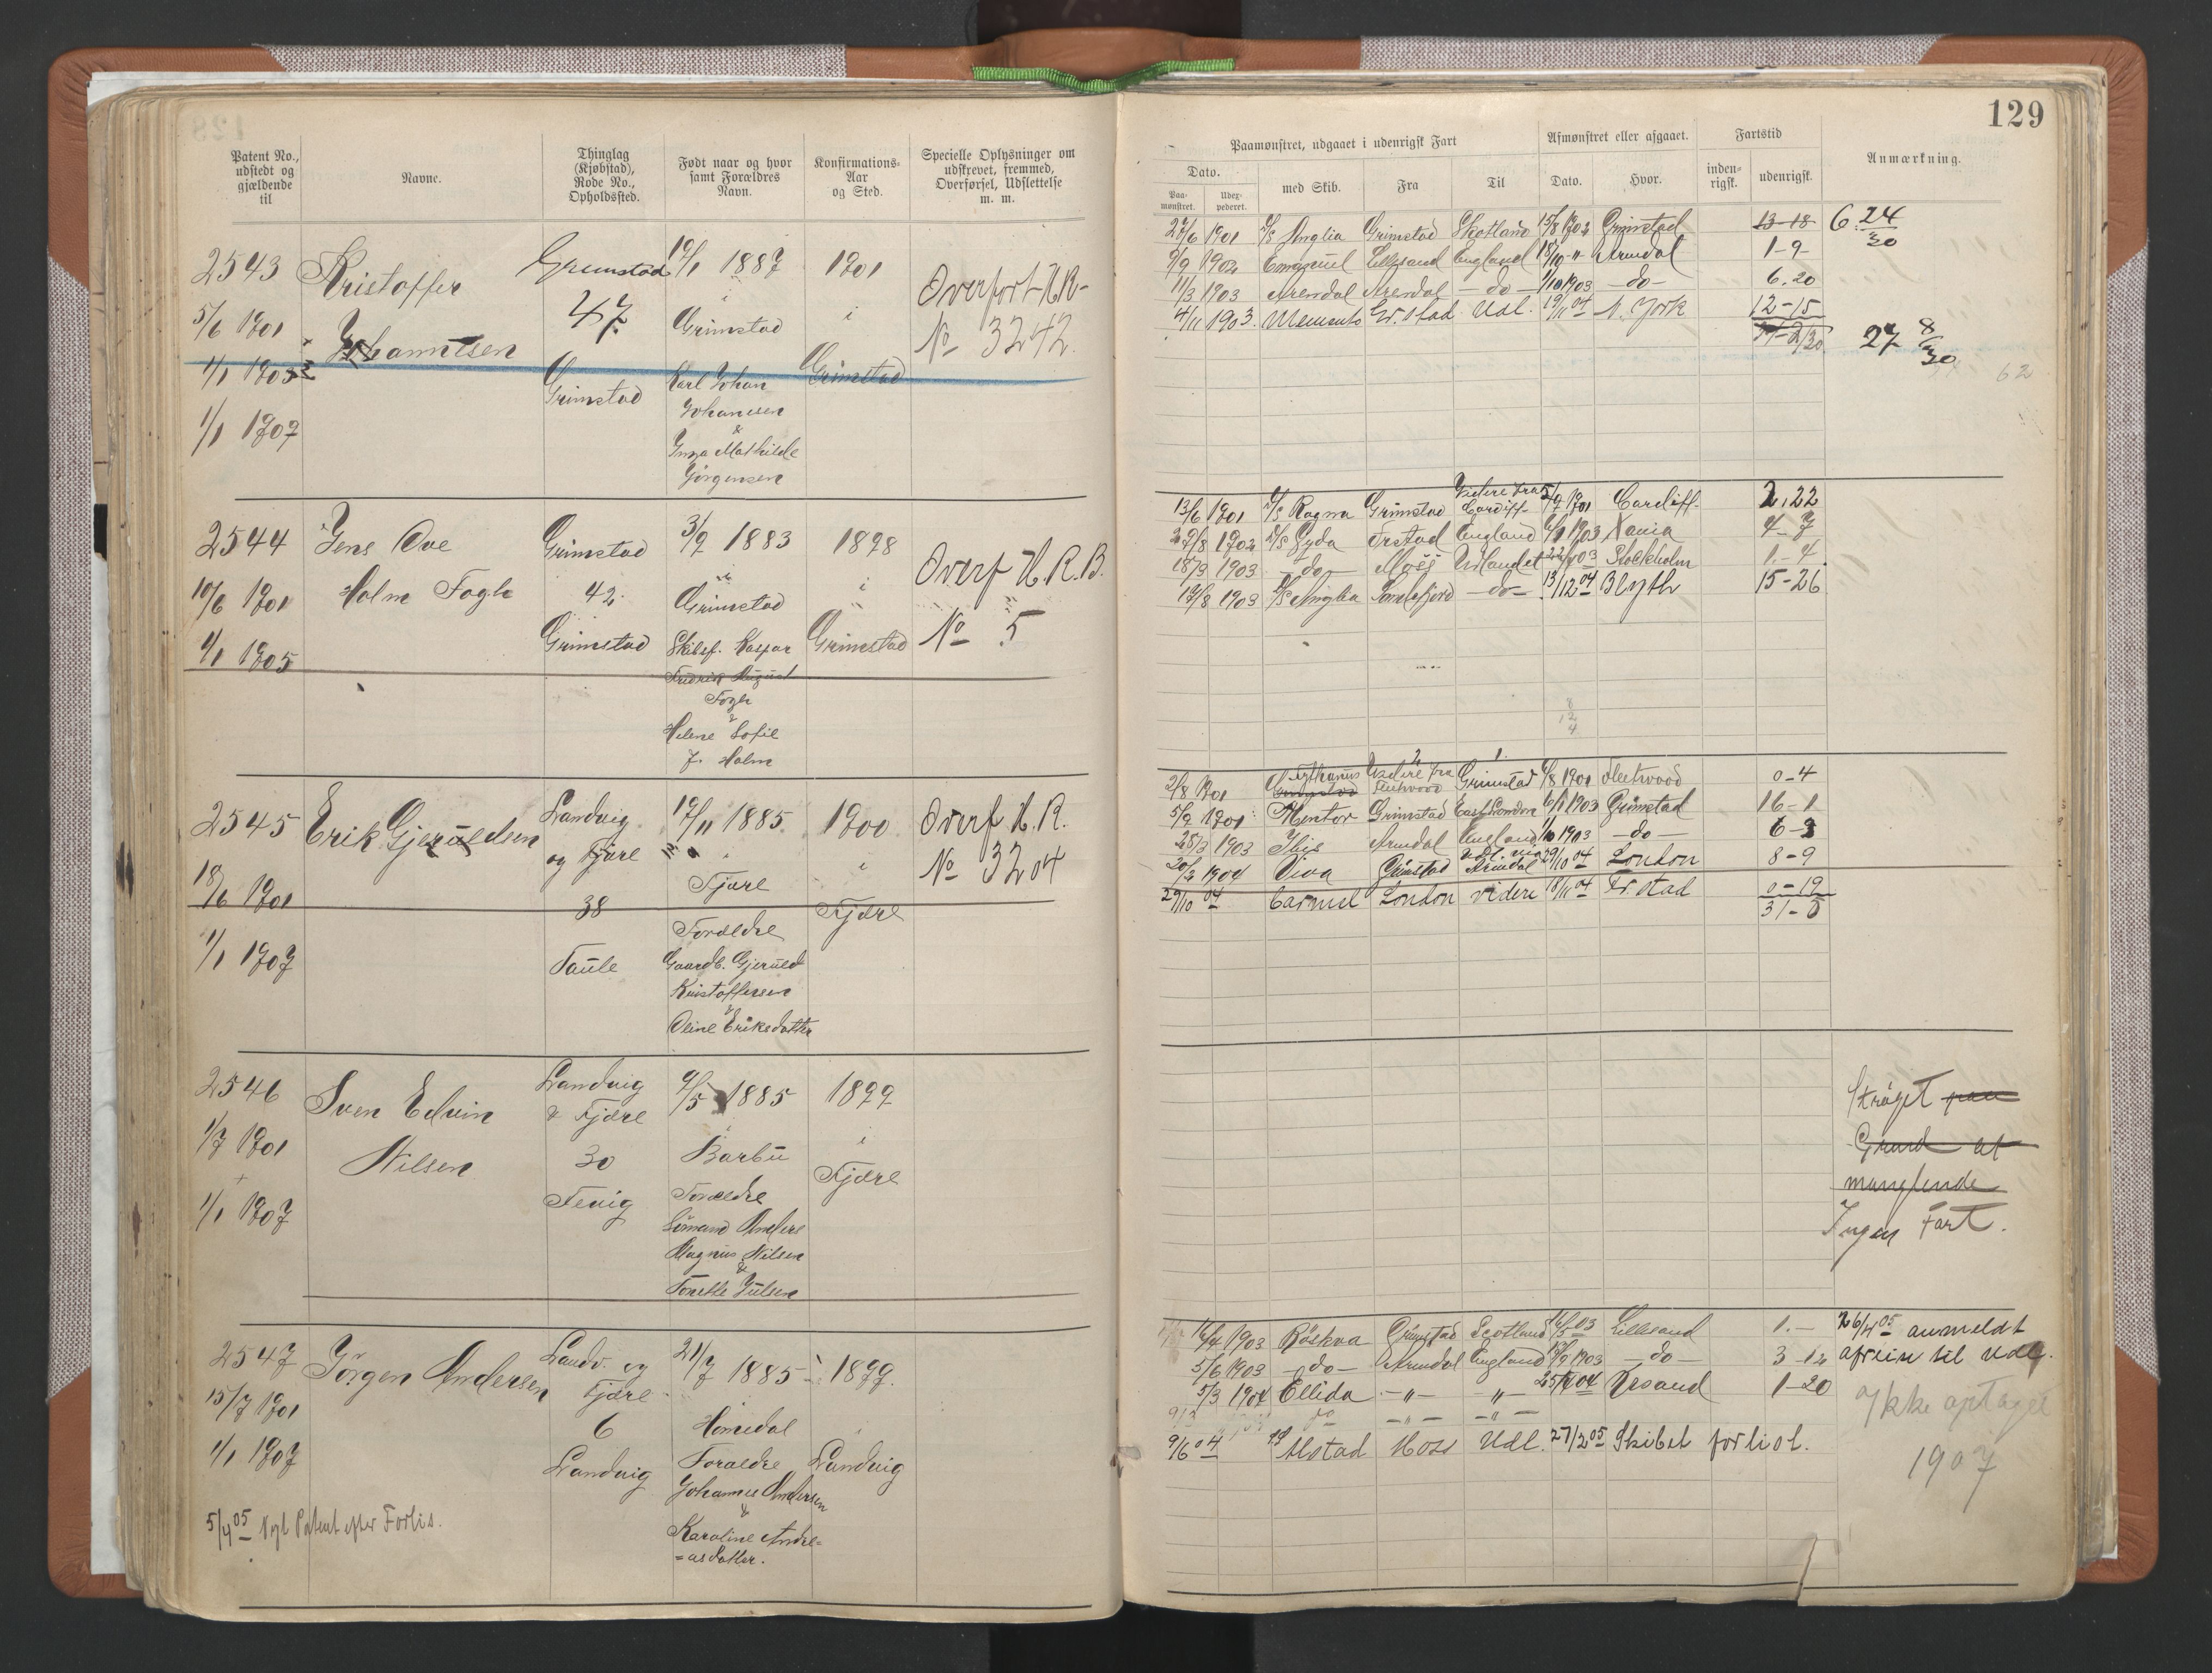 129
Patent No., udstedt og gjældende til
Navne.
Thinglag (Kjøbstad), Rode No., Opholdssted.
Født naar og hvor samt Forældres Navn.
Konfirmations-Aar og Sted.
Specielle Oplysninger om udskrevet, fremmed, Overførsel, Udslettelse m. m.
2543
5/6 1901
1/1 1907
Kristoffer
Johannesen
Grimstad
47
Grimstad
19/1 1887
Grimstad
Karl Johan
Johannesen
&
Inga Mathilde
Jørgensen
1901
Grimstad
Overført H R
No 3242.
2544
10/6 1901
1/1 1905
Jens Ove
Holm Fogh
Grimstad
42
Grimstad
3/9 1883
Grimstad
Skibsf. Kaspar
Fredrik August
Fogh
&
Helene Sofie
f. Holm
1898
Grimstad
Overf H. R. B.
No 5
2545
18/6 1901
1/1 1907
Erik Gjeruldsen
Landvig
og Fjære
38
19/11 1885
Fjære
Forældre
Gaardb. Gjeruld
Kristoffersen
&
Oline Eriksdatter
1900
Fjære
Overf H. R.
No 3204
2546
1/7 1901
1/1 1907
Sven Edvin
Nilsen
Landvig
& Fjære
30
Fevig
9/5 1885
Barbu
Forældre
Sømand Anders
Magnus Nilsen
&
1899
Fjære
2547
15/7 1901
1/1 1907
5/4 05 Nyt Patent efter Forlis.
Jörgen Andersen
Landv. og
Fjære
6
Landvig
21/7 1885
Homedal
Forældre
Johannes Andersen
&
Karoline Andre-
=asdatter.
1899.
Landvig
Paamønstret, udgaaet i udenrigsk Fart
Afmønstret eller afgaaet.
Fartstid
Anmærkning.
Dato.
med Skib.
Fra
Til
Dato.
Hvor.
inden-rigsk.
udenrigsk.
Paa-mønstret.
Udex-pederet.
27/6 1901 D/S Anglia Grimstad Skotland 15/8 1902 Grimstad 13-18 6 24/30
9/9 1902 Emanuel Lillesand England 18/10 " Arendal 1-9
11/3 1903 Arendal Arendal - do - 1/10 1903 - do - 6.20
4/11 1903. Memento Gr.stad Udl. 19/11 04 N. York 12-15
27 8/30
62
13/6 1901 D/S Ragna Grimstad Videre fra Cardiff 5/9 1901 Cardiff 2.22
29/8 1902 D/S Gyda Frstad England 6/1 1903 Xania 4-7
18/3 1903 - do - Moss Udlandet 22/4 03 Stockholm 1-4
19/8 1903 D/S Anglia Sandefjord - do - 13/12 04 Blyth 15-26
2/8 1901 Videre fra Fleetwood Grimstad 6/8 1901 Fleetwood 0-4
5/9 1901 Mentor Grimstad East London 6/1 1903 Grimstad 16-1
25/3 1903 Ibis Arendal England 1/10 1903 - do -
20/2 1904 Viva Grimstad Arendal 29/10 04 London 8-9
29/10 04 Carmel London videre 18/11 04 Fr.stad 0-19
Strøget paa
Grund af
manglende
Ingen Fart.
16/4 1903 Röskva Grimstad Scotland 16/5 03 Lillesand 1.- 26/4 05 anmeldt
5/6 1903 - do - Arendal England 1903 - do - 3-12
5/3 1904 Ellida - " - - " - Ørsand 1-20
ikke optaget
9/6 04 Alstad Moss Udl. 27/2 05 Skibet forlist.
1907